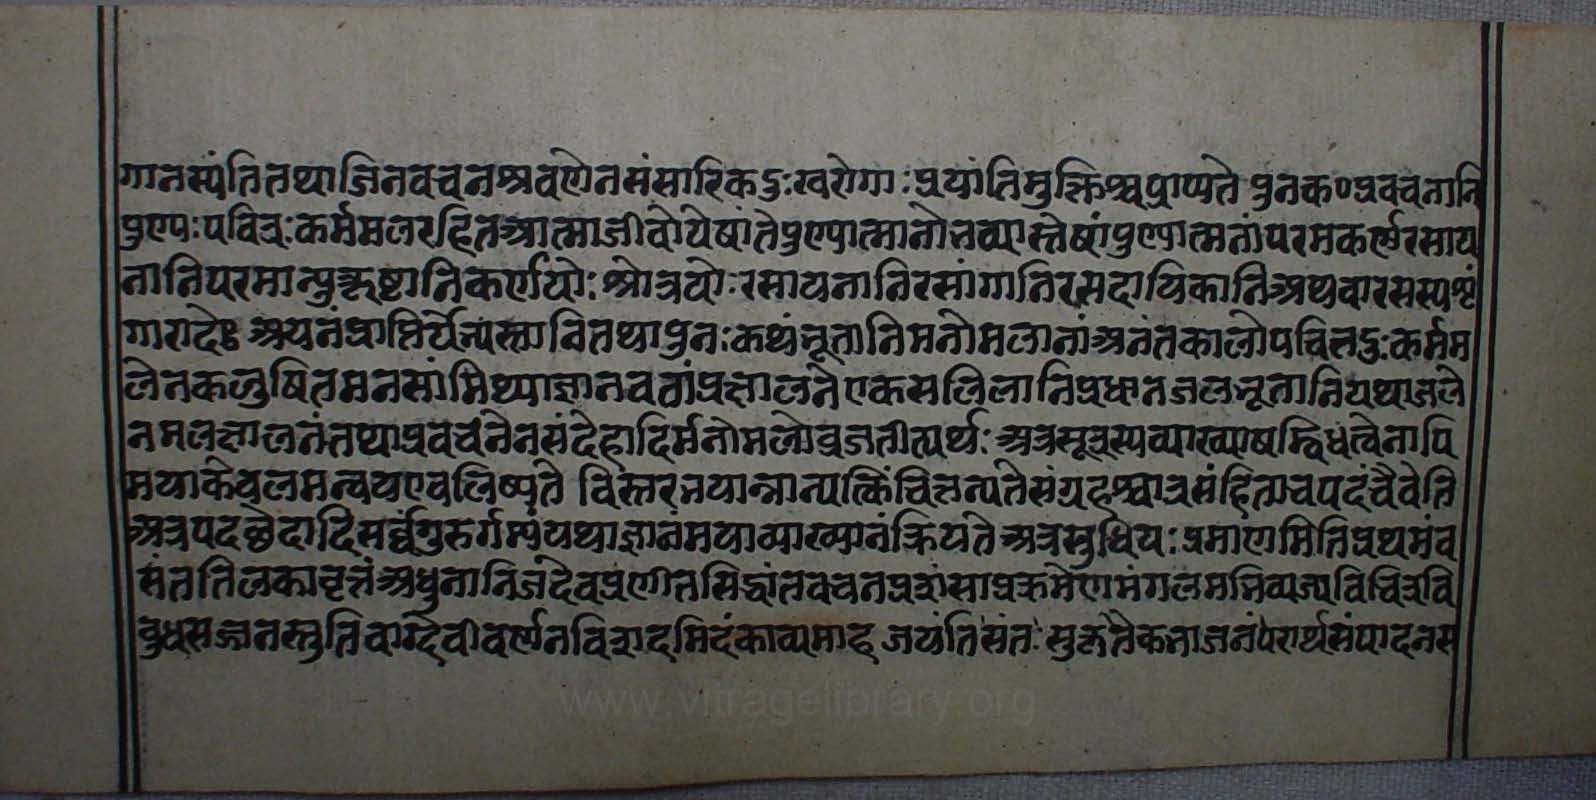 गानस्यंतितथाजिनवचनश्रवणेनसंसारिकदुःखरोगाःप्रयांतिमुक्तिश्चप्राप्यते पुनकण्प्रवचनानि
पुण्यःपवित्रःकर्ममलरहितआत्माजीवोयेषांतेपुण्यात्मानोभव्यास्तेषांपुण्यात्मनांपरमकर्णरसाय
नानिपरमान्युत्कृष्टानिकर्णयोःश्रोत्रयोःरसायनानिरसांगानिरसदायिकानिअथवारसस्यशृं
गारादेः अयनंप्राप्तिर्येभ्यस्तानितथापुनःकथंभूतानिमनोमलानांअनंतकालोपचितदुःकर्मम
लेनकलुषितमनसांमिथ्याज्ञानवतांप्रक्षालनेएकसलिलानिप्रधानजलभूतानियथाजले
नमलक्षालनंतथाप्रवचनेनसंदेहादिर्मनोमलोव्रजतीत्यर्थःअत्रसूत्रस्यव्याख्याषड्विधत्वेनापि
मयाकेवलमन्वयएवलिष्यते विस्तरभयान्नान्यत्किंचित्तन्यतेसंग्रहश्चात्रसंहिताचपदंचैवेति
अत्रपदछेदादिसर्व्वंगुरुर्गम्यंयथाज्ञानंमयाव्याख्यानंक्रियतेअत्रसुधियःप्रमाणमितिप्रथमंव
संततिलकावृत्तंअधुनानिजदेवप्रणीतसिद्धांतवचनप्रशंसाप्रक्रमेणमंगलमभिव्यज्यविचित्रवि
बुधसज्जनस्तुतिवाग्देवीवर्णनविशदमिदंकाव्यमाह जयंतिसंतः सुकृतैकभाजनंपरार्थसंपादनस
www.vitragelibrary.org